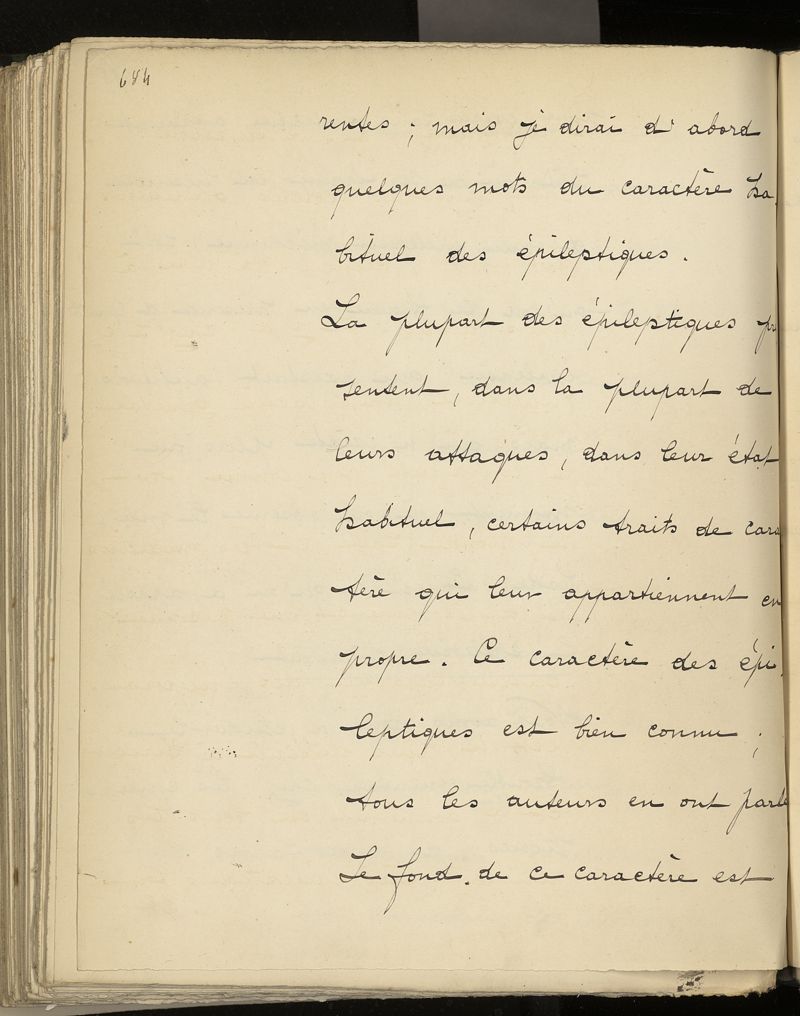 684
rentes ; mais je dirai d'abord
quelques mots du caractère ha
bituel des épileptiques.
La plupart des épileptiques pr
sentent, dans la plupart de
leurs attaques, dans leur état
habituel, certains traits de cara
tère qui leur appartiennent en
propre. Ce caractère des épi
leptiques est bien connu ;
tous les auteurs en ont parlé
Le fond de ce caractère est